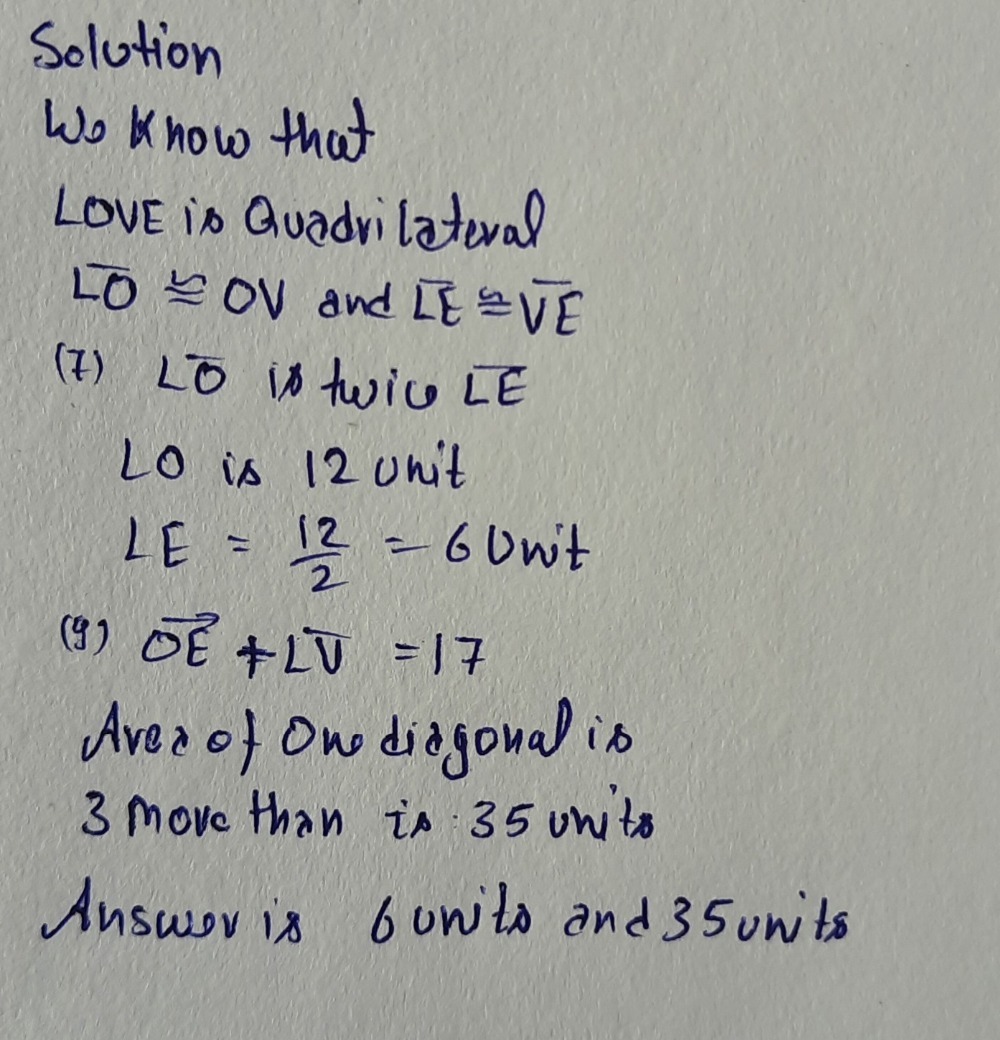 Solution
We know that
LOVE is Quadrilateral
L̅O̅ ≅ OV and L̅E̅ ≅ V̅E̅
(7) L̅O̅ is twice L̅E̅
LO is 12 unit
LE = 12/2 = 6 Unit
(9) O̅E̅ + L̅V̅ = 17
Area of One diagonal is
3 more than is : 35 units
Answer is 6 units and 35 units